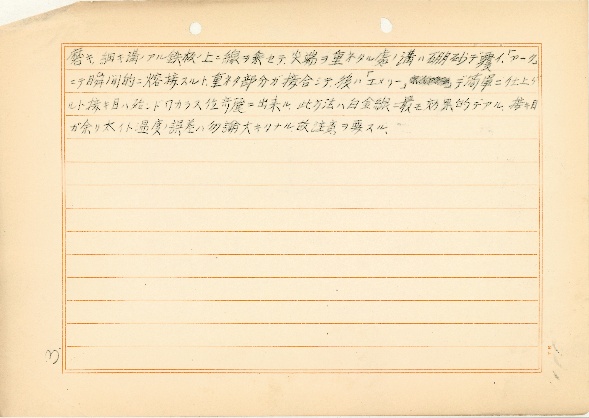 磨キ、細キ溝ノアル鉄板ノ上ニ線ヲ乗セテ、尖端ヲ重ネタル處ノ溝ハ硼砂デ覆イ、「アーク」
ニテ瞬間的ニ熔接スルト、重ネタ部分ガ接合シテ、後ハ「エメリー」デ簡單ニ仕上ゲ
ルト接キ目ハ殆ンドワカラヌ位奇麗ニ出來ル、此方法ハ白金線ニ最モ効果的デアル、接キ目
ガ余リ太イト温度ノ誤差ハ勿論大キクナル故注意ヲ要スル、